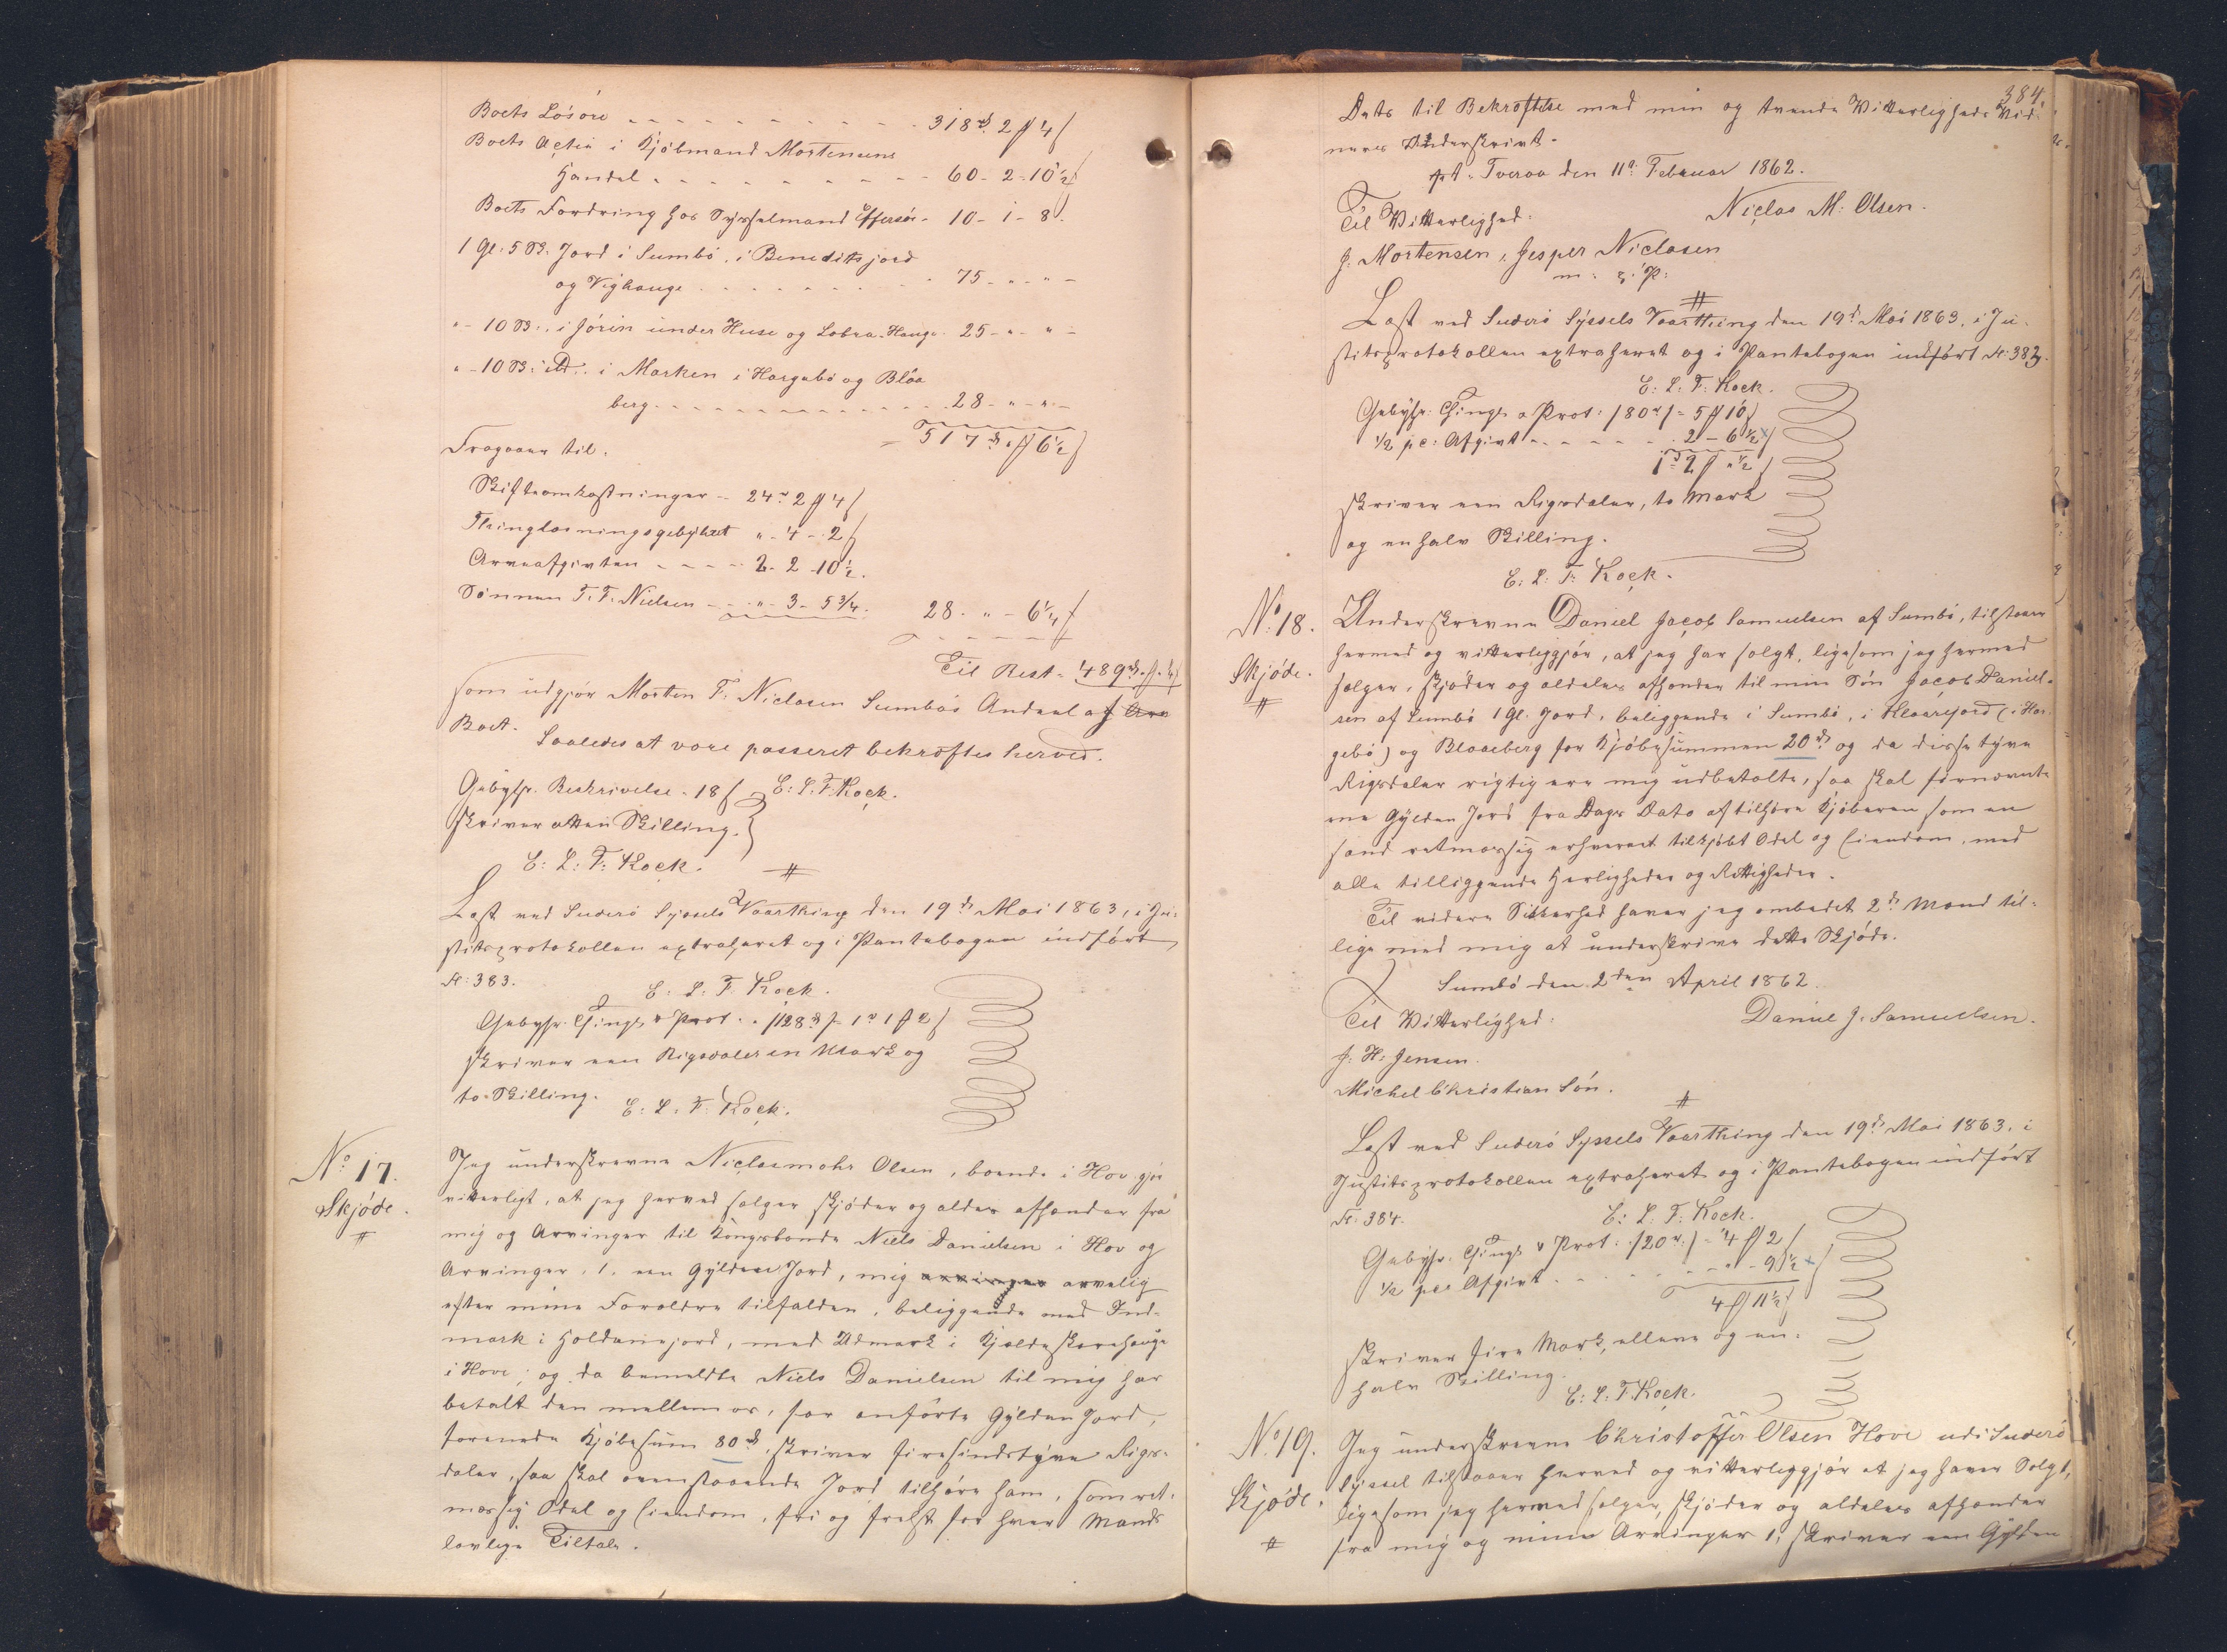 Boets Lösöre - - - - - - - - - - 318rd 2 ℳ 4 ß
Boets Actie i Kjöbmand Mortensens
Handel - - - - - - - - - - 60 - 2 - 10½
Boets Fordring hos Sysselmand Effersöe - 10 - 1 - 8.
1 Gl: 5 Sk: Jord i Sumbö, i Beneditsjord
og Vighauge - - - - - - - - - 75 - " - " -
" - 10 Sk: i Jórin under Huse og Lobra-Hauge - 25 - " - " -
" - 10 Sk: ib. i Marken i Horgabö og Blóa
berg - - - - - - - - - - - 28 - " - " -
517rd " ℳ 6½ ß
Fragaaer til:
Skifteomkostninger - 24rd 2 ℳ 4 ß
Thinglæsningsgebyhret " - 4 - 2 ß
Arveafgivten - - - - 2 - 2 - 10½.
Sönnen T. F. Nielsen - - " - 3 - 5¾. 28 - " - 6¼ ß
Til Rest - 489rd " ℳ " ¼ ß
som udgjör Morten F: Niclasen Sumbös Andeel af Arv
Boet.
Saaledes at være passeret bekræftes herved.
Gebyhr. Beskrivelse - 18 ß E: L: F: Kock.
skriver atten Skilling.
E: L: F: Kock.
Læst ved Suderö Syssels Vaarthing den 19de Mai 1863, i Ju-
stitsprotokollen extraheret og i Pantebogen indfört
Fol: 383.
E: L: F: Kock.
Gebyhr. Things & Prot: /128rd/ - 1rd 1 ℳ 2 ß
skriver een Rigsdaler en Mark og
to Skilling.
E: L: F: Kock.
No 17.
Skjöde.
Jeg underskrevne Niclasmohr Olsen, boende i Hov gjör
vitterligt, at jeg herved sælger skjöder og aldeles afhænder fra
mig og Arvinger til Kongsbonde Niels Danielsen i Hov og
Arvinger, 1. een Gylden Jord, mig arvinger arvelig
efter mine Forældre tilfalden, beliggende med Ind-
mark i Holdanejord, med Udmark i Kjeldeskorehauge
i Hove; og da bemeldte Niels Danielsen til mig har
betalt den mellem os, for anförte Gylden Jord,
forenede Kjöbesum 80rd, skriver firesindstyve Rigs-
daler, saa skal ovenstaaende Jord tilhöre ham, som ret-
mæssig Odel og Eiendom, fri og frelst for hver Mands
lovlige Tiltale.
384.
Dets til Bekræftelse med min og tvende Vitterligheds Vid-
neres Underskrivt.
pt. Tveraa den 11te Februar 1862.
Niclas M: Olsen.
Til Vitterlighed:
J. Mortensen, Jesper Niclasen
m: p: P:
Læst ved Suderö Syssels Vaarthing den 19de Mai 1863, i Ju-
stitsprotokollen extraheret og i Pantebogen indfört Fol: 383.
E: L: F: Kock.
Gebyhr: Things & Prot: /80rd/ = 5 ℳ 10 ß
½ pc: Afgivt - - - - - - 2 - 6½
1rd 2 ℳ " ½ ß
skriver een Rigsdaler, to Mark
og en halv Skilling.
E: L: F: Kock.
No 18.
Skjöde.
Underskrevne Daniel Jacob Samuelsen af Sumbö, tilstaaer
hermed og vitterliggjör, at jeg har solgt, ligesom jeg hermed
sælger, skjöder og aldeles afhænder til min Sön Jacob Daniel-
sen af Sumbö 1 Gl. Jord, beliggende i Sumbö, i Kloarejord (i Hor-
gebö) og Bloaeberg for Kjöbesummen 20rd og da disse tyve
Rigsdaler rigtig ere mig udbetalte, saa skal fornævnte
ene Gylden Jord fra Dags Dato af tilhöre Kjöberen som en
sand retmæssig erhvervet tilkjöbt Odel og Eiendom, med
alle tilliggende Herligheder og Rettigheder.
Til videre Sikkerhed haver jeg ombedet 2de Mænd til-
lige med mig at underskrive dette Skjöde.
Sumbö den 2den April 1862.
Til Vitterlighed: Daniel J. Samuelsen.
J. H: Jensen.
Michel Christian Sön.
Læst ved Suderö Syssels Vaarthing den 19de Mai 1863, i
Justitsprotokollen extraheret og i Pantebogen indfört
Fol: 384.
E: L: F: Kock.
Gebyhr. Things & Prot: /20rd/ = "4 ℳ 2 ß
½ pc: Afgivt - - - - - " - 9½
4 ℳ 11½ ß
skriver fire Mark, elleve og en-
halv Skilling.
E: L: F: Kock.
No 19.
Skjöde.
Jeg underskrevne Christoffer Olsen Hove udi Suderö
Syssel tilstaaer herved og vitterliggjör at jeg haver Solgt,
ligesom jeg hermed sælger, skjöder og aldeles afhænder
fra mig og mine Arvinger 1, skriver een Gylden